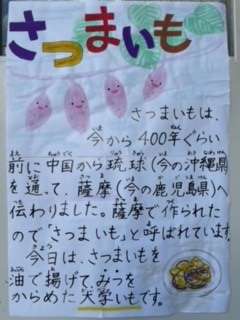 さつまいも
さつまいもは、
今から、400年ぐらい
前に中国から琉球(今の沖縄県)
を通って、薩摩(今の鹿児島県)へ
伝わりました。薩摩で作られた
ので「さつまいも」と呼ばれています。
今日は、さつまいもを
油で揚げてみつを
からめた大学いもです。